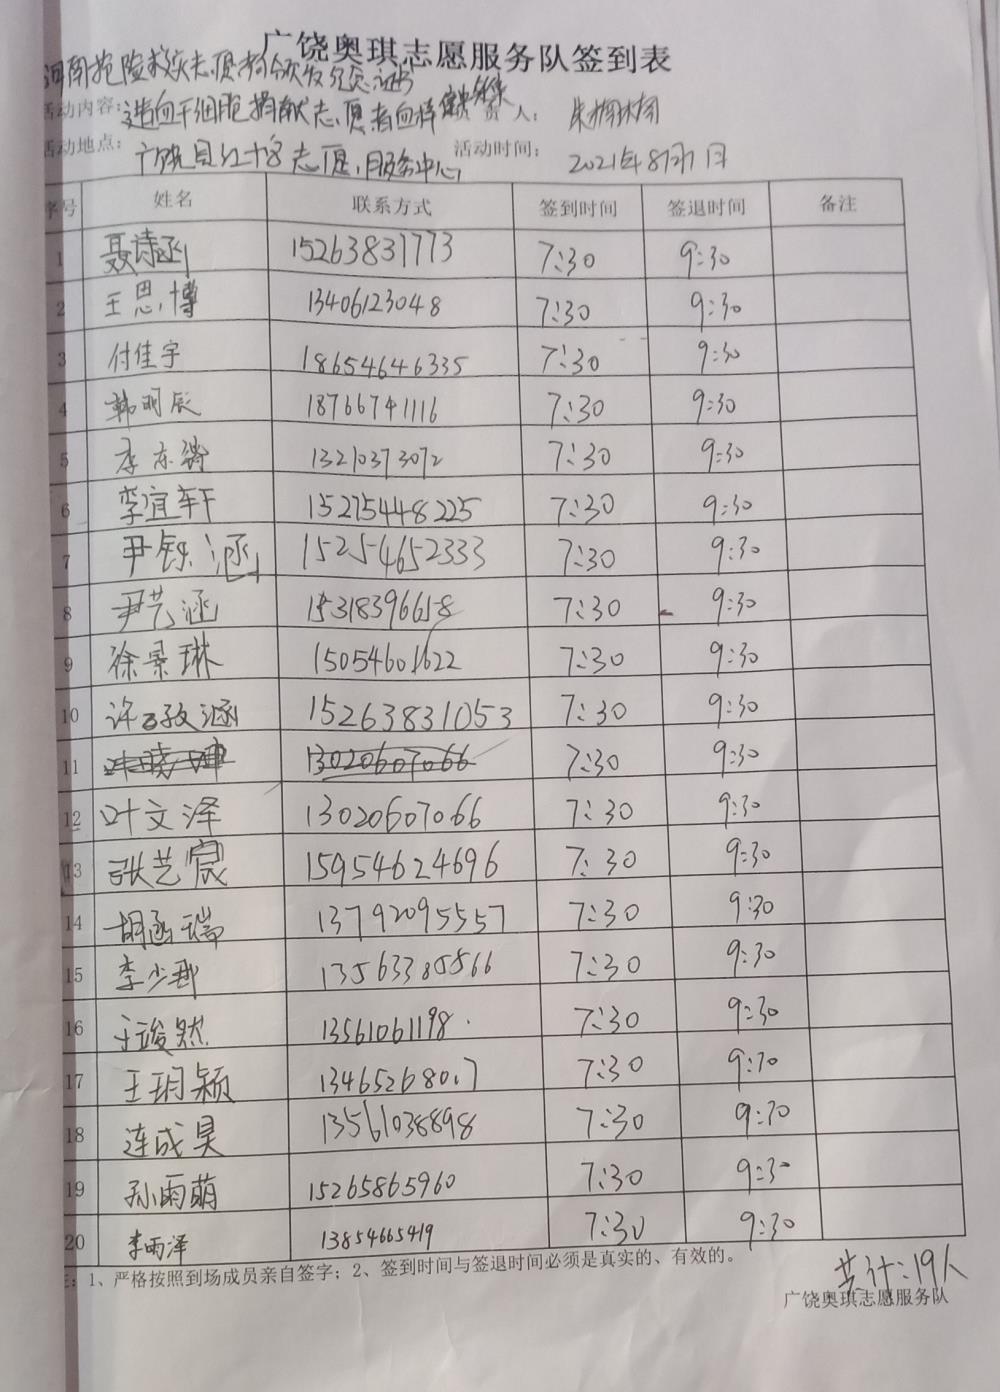 广饶奥琪志愿服务队签到表
河南抢险救灾志愿者颁发纪念证书
活动内容：造血干细胞捐献志愿者血样采集 负责人：朱栩栩
活动地点：广饶县红十字志愿服务中心 活动时间：2021年8月1日
序号 姓名 联系方式 签到时间 签退时间 备注
1 聂诗函 15263831773 7:30 9:30
2 王思博 13406123048 7:30 9:30
3 付佳宇 18654646335 7:30 9:30
4 韩明辰 18766741116 7:30 9:30
5 李东 13210373072 7:30 9:30
6 李宜轩 15275448225 7:30 9:30
7 尹铄涵 15254652333 7:30 9:30
8 尹艺涵 15318396658 7:30 9:30
9 徐景琳 15054601622 7:30 9:30
10 许孜涵 15263831053 7:30 9:30
11 13020607066 7:30 9:30
12 叶文泽 13020607066 7:30 9:30
13 张艺宸 15954624696 7:30 9:30
14 胡函瑞 13792095557 7:30 9:30
15 李少 13563385866 7:30 9:30
16 于竣然 13561061198. 7:30 9:30
17 王玥颖 7:30 9:30
18 连成昊 13561038898 7:30 9:30
19 孙雨萌 15265865960 7:30 9:30
20 李雨泽 13854665419 7:30 9:30
注：1、严格按照到场成员亲自签字；2、签到时间与签退时间必须是真实的、有效的。
共计：19人
广饶奥琪志愿服务队